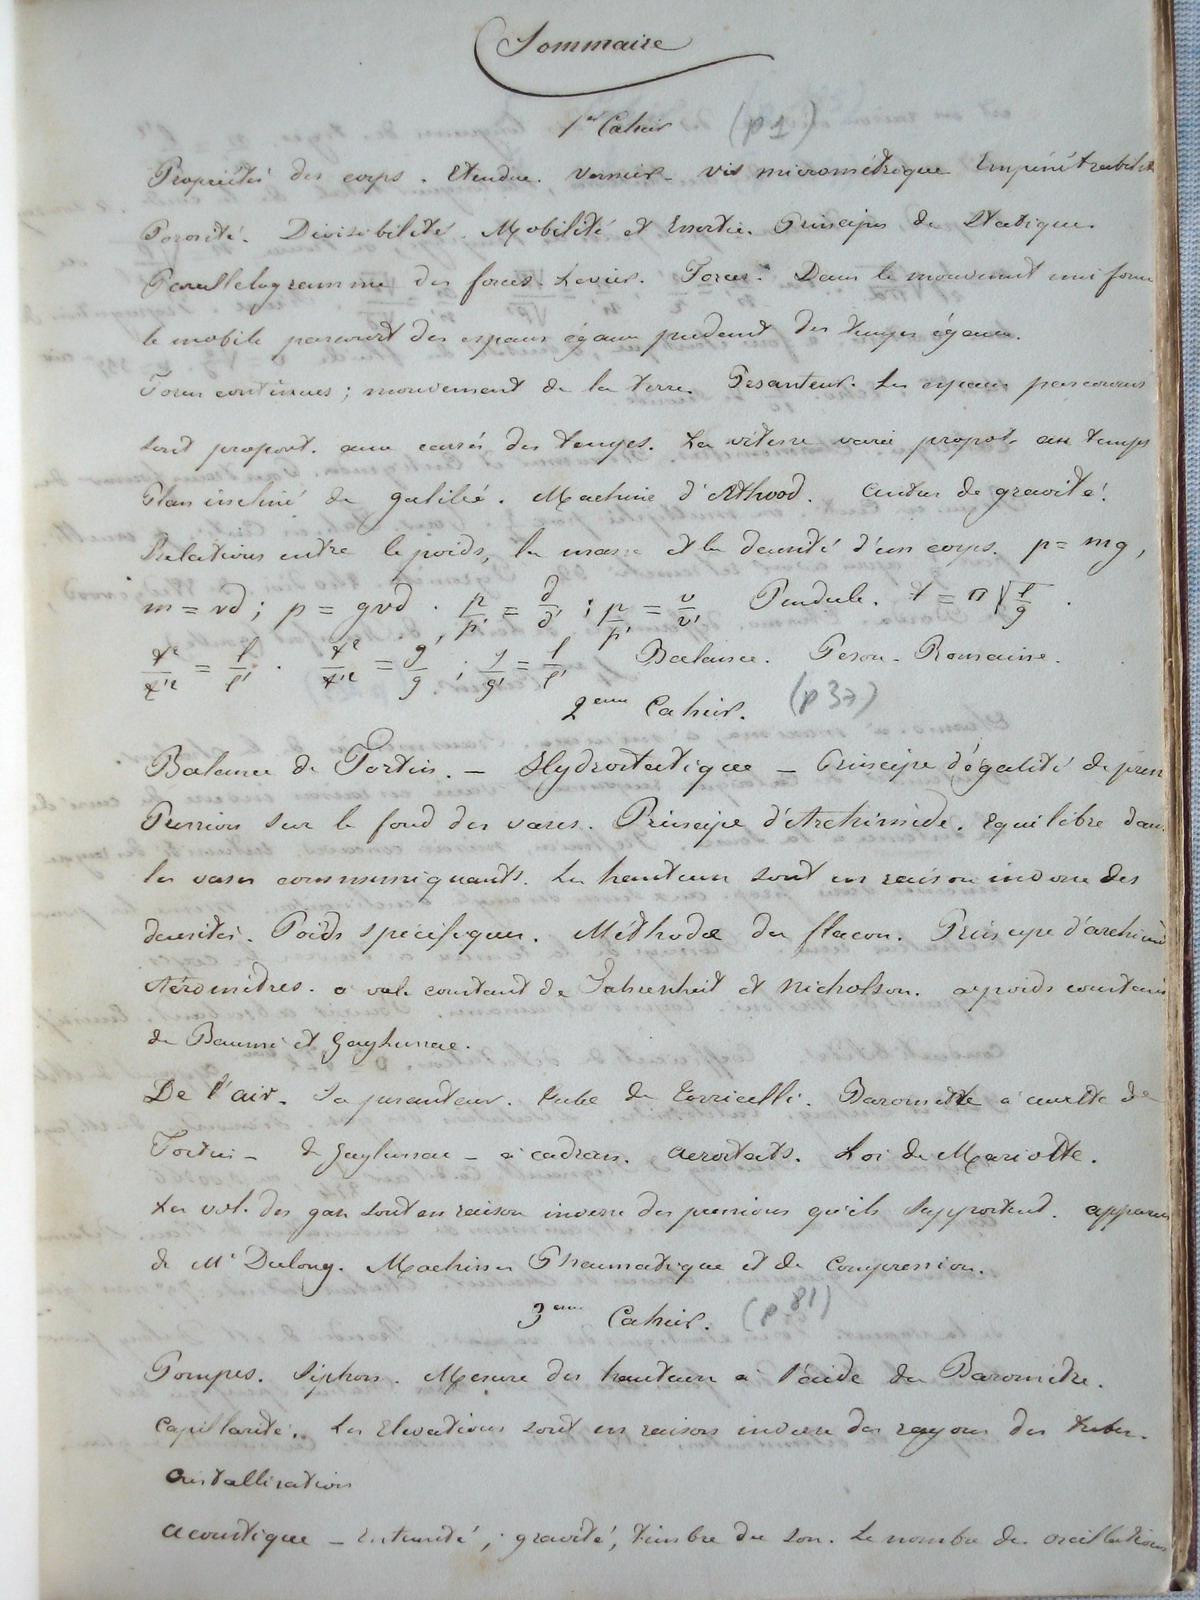 Sommaire
1er Cahier (p 1)
Propriétés des corps. Etendue. Vernier. Vis micrométrique Impénétrabilité
Porosité. Divisibilité. Mobilité et Inertie. Principes de Statique.
Parallelogramme des forces. Levier. Forces. Dans le mouvement uniforme
le mobile parcourt des espaces égaux pendant des temps égaux.
Forces continues; mouvement de la terre. Pesanteur. Les espaces parcourus
sont proport. aux carrés des temps. La vitesse varie propot. au temps
Plan incliné de galilée. Machine d'Athood. Centre de gravité.
Relations entre le poids, la masse et la densité d'un corps. p = mg,
m = vd; p = gvd. p/p' = d/d'; p/p' = v/v'. Pendule. t = π√l/g.
t²/t'² = l/l'. t²/t'² = g'/g; g/g' = l/l' Balance. Peson. Romaine.
2eme Cahier. (p 37)
Balance de Fortin. — Hydrostatique — Principe d'égalité de press
Pression sur le fond des vases. Principe d'Archimède. Equilibre dans
les vases communiquants. Les hauteurs sont en raison inverse des
densités. Poids spécifiques. Méthode du flacon. Principe d'archimède
Aréomètres. a vol. constant de Fahrenheit et Nicholson. a poids constant
de Baumé et Gaylussac.
De l'air. Sa pesanteur. tube de Torricelli. Baromètre a cuvette de
Fortin — de Gaylussac — a cadran. aerostats. Loi de Mariotte.
Les vol. des gaz sont en raison inverse des pressions qu'ils supportent. appareil
de Mr Dulong. Machines Pneumatique et de Compression.
3eme Cahier. (p 81)
Pompes. Siphon. Mesure des hauteurs a l'aide du Baromètre.
Capillarité. Les Elevations sont en raison inverse des rayons des tubes.
Cristallisation
Acoustique — intensité; gravité, timbre du son. Le nombre des oscillations